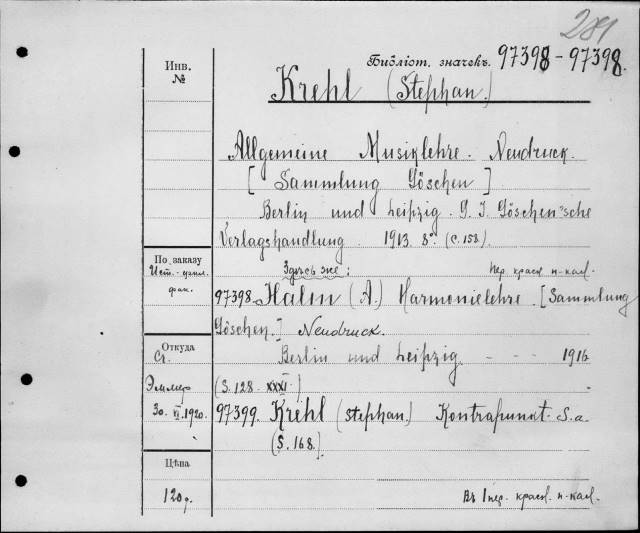 281
Инв. №
Библіот. значекъ. 97398 - 97398.
Krehl (Stephan.)
Allgemeine Musiklehre. Neudruck.
[Sammlung Göschen]
Berlin und Leipzig. G. J. Göschen'sche
Verlagshandlung 1913. 8°. (С. 153).
По заказу
Ист.-филл. фак.
Здѣсь же:
Пер. красн. п-кал.
97398. Halm (A.) Harmonielehre. [Sammlung
Göschen.] Neudruck.
Откуда
Berlin und Leipzig - - - 1916
Ст. Эмлер
(S. 128 XXXI.)
30. VI. 1920.
97399. Krehl (Stephan.) Kontrapunkt. S. a.
(S. 168.).
Цѣна
120 р.
Въ 1 пер. красн. п-кал.